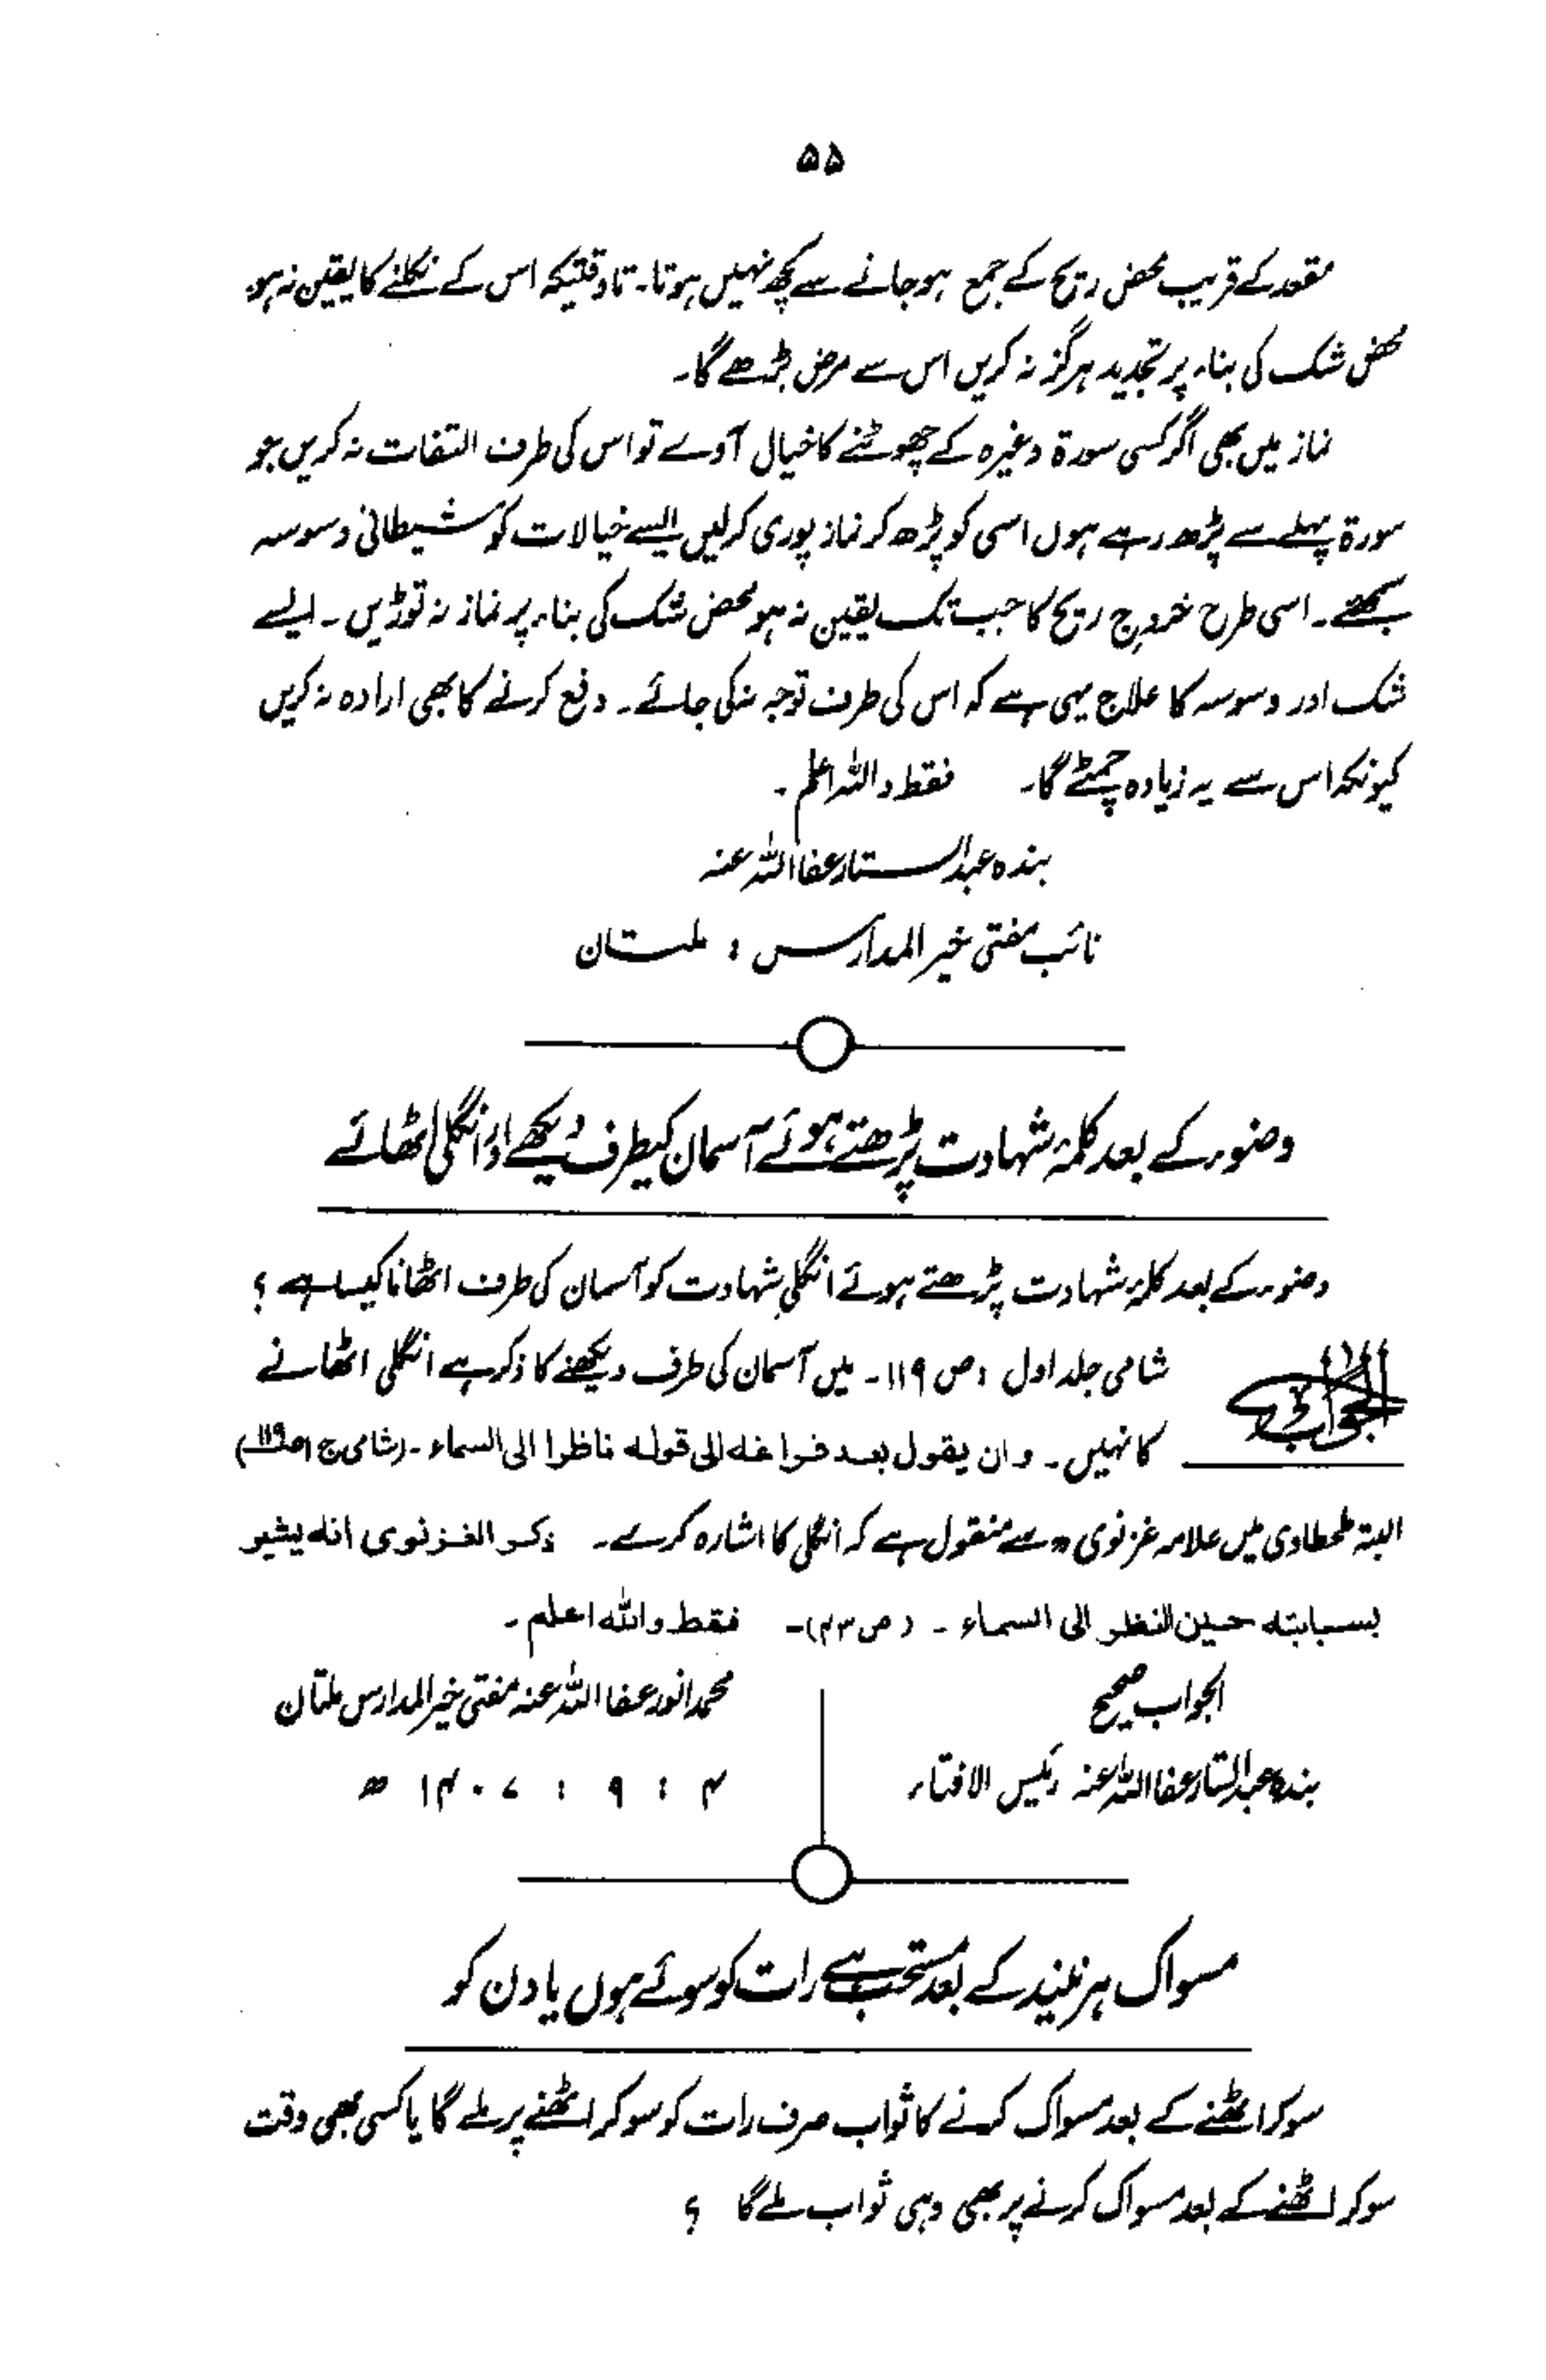 ۵۵
مقعد کے قریب محض ریح کے جمع ہوجانے سے کچھ نہیں ہوتا۔ تاوقتیکہ اس کے نکلنے کا یقین نہ ہو
محض شک کی بناء پر تجدید ہرگز نہ کریں اس سے مرض بڑھے گا۔
نماز میں بھی اگر کسی سورۃ وغیرہ کے چھوٹنے کا خیال آوے تو اس کی طرف التفات نہ کریں جو
سورۃ پہلے سے پڑھ رہے ہوں اسی کو پڑھ کر نماز پوری کرلیں ایسے خیالات کو شیطانی وسوسہ
سمجھئے۔ اسی طرح خروجِ ریح کا جب تک یقین نہ ہو محض شک کی بناء پر نماز نہ توڑیں۔ ایسے
شک اور وسوسہ کا علاج یہی ہے کہ اس کی طرف توجہ نہ کی جائے۔ دفع کرنے کا بھی ارادہ نہ کریں
کیونکہ اس سے یہ زیادہ چمٹے گا۔ فقط واللہ اعلم۔
بندہ عبدالستار عفا اللہ عنہ
نائب مفتی خیر المدارس ؛ ملتان
وضوء کے بعد کلمۂ شہادت پڑھتے ہوئے آسمان کیطرف دیکھے اور انگلی اٹھائے
وضوء کے بعد کلمۂ شہادت پڑھتے ہوئے انگلیِ شہادت کو آسمان کی طرف اٹھانا کیسا ہے ؟
الجواب شامی جلد اول ؛ ص ۱۱۹۔ میں آسمان کی طرف دیکھنے کا ذکر ہے انگلی اٹھانے
کا نہیں۔ وان یقول بعد فراغه الی قوله ناظرا الی السماء۔ (شامی ج۱ ص۱۱۹)
البتہ طحطاوی میں علامہ غزنویؒ سے منقول ہے کہ انگلی کا اشارہ کرے۔ ذکر الغزنوی انه یشیر
بسبابته حین النظر الی السماء۔ (ص ۴۳)۔ فقط واللہ اعلم۔
الجواب صحیح
بندہ عبدالستار عفا اللہ عنہ رئیس الافتاء
محمد انور عفا اللہ عنہ مفتی خیر المدارس ملتان
۴ : ۹ : ۱۴۰۷ ھ
مسواک ہر نیند کے بعد مستحب ہے رات کو سوئے ہوں یا دن کو
سوکر اٹھنے کے بعد مسواک کرنے کا ثواب صرف رات کو سوکر اٹھنے پر ملے گا یا کسی بھی وقت
سوکر اٹھنے کے بعد مسواک کرنے پر بھی وہی ثواب ملے گا ؟